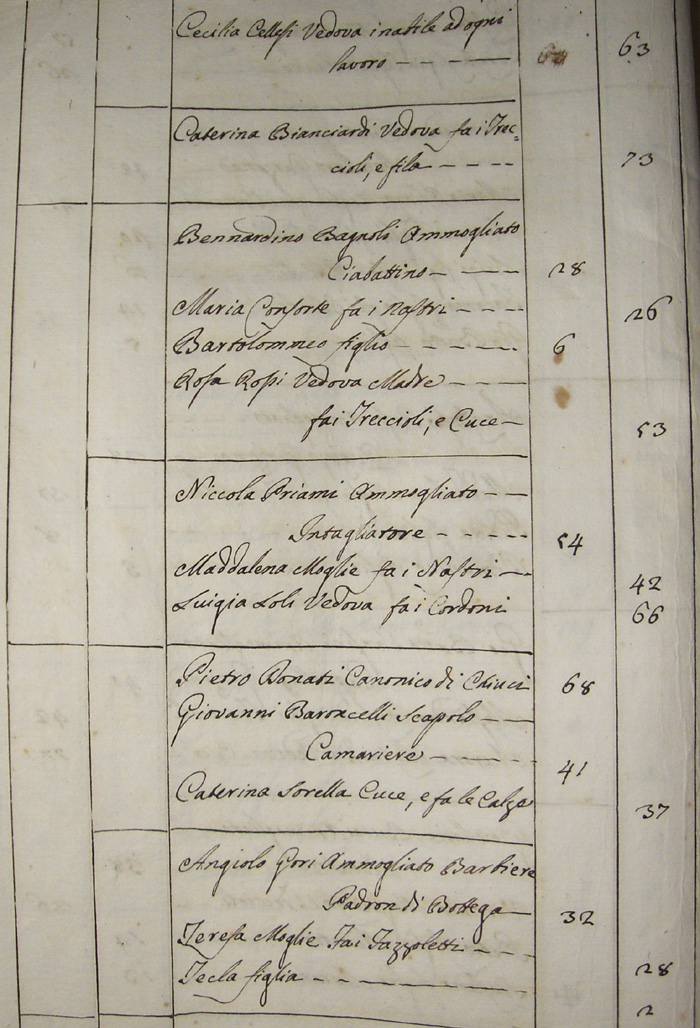 Cecilia Cellesi Vedova inabile ad ogni
lavoro - - - 63
Caterina Bianciardi Vedova fa i Trec=
cioli, e fila - - - - 73
Bernardino Bagnoli Ammogliato
Ciabattino - - - 28
Maria Consorte fa i Nastri - - - - 26
Bartolommeo figlio - - - - - - 6
Rosa Rossi Vedova Madre - - -
fa i Treccioli, e Cuce - 53
Niccola Priami Ammogliato - -
Intagliatore - - - - - 54
Maddalena Moglie fa i Nastri - - 42
Luigia Loli Vedova fa i Cordoni 66
Pietro Donati Canonico di Chiuci 68
Giovanni Baroncelli Scapolo - -
Camariere - - - - - 41
Caterina Sorella Cuce, e fa le Calze 37
Angiolo Gori Ammogliato Barbiere
Padron di Bottega - 32
Teresa Moglie Fa i Fazzoletti - - - 28
Tecla figlia - - - - - - - - 2